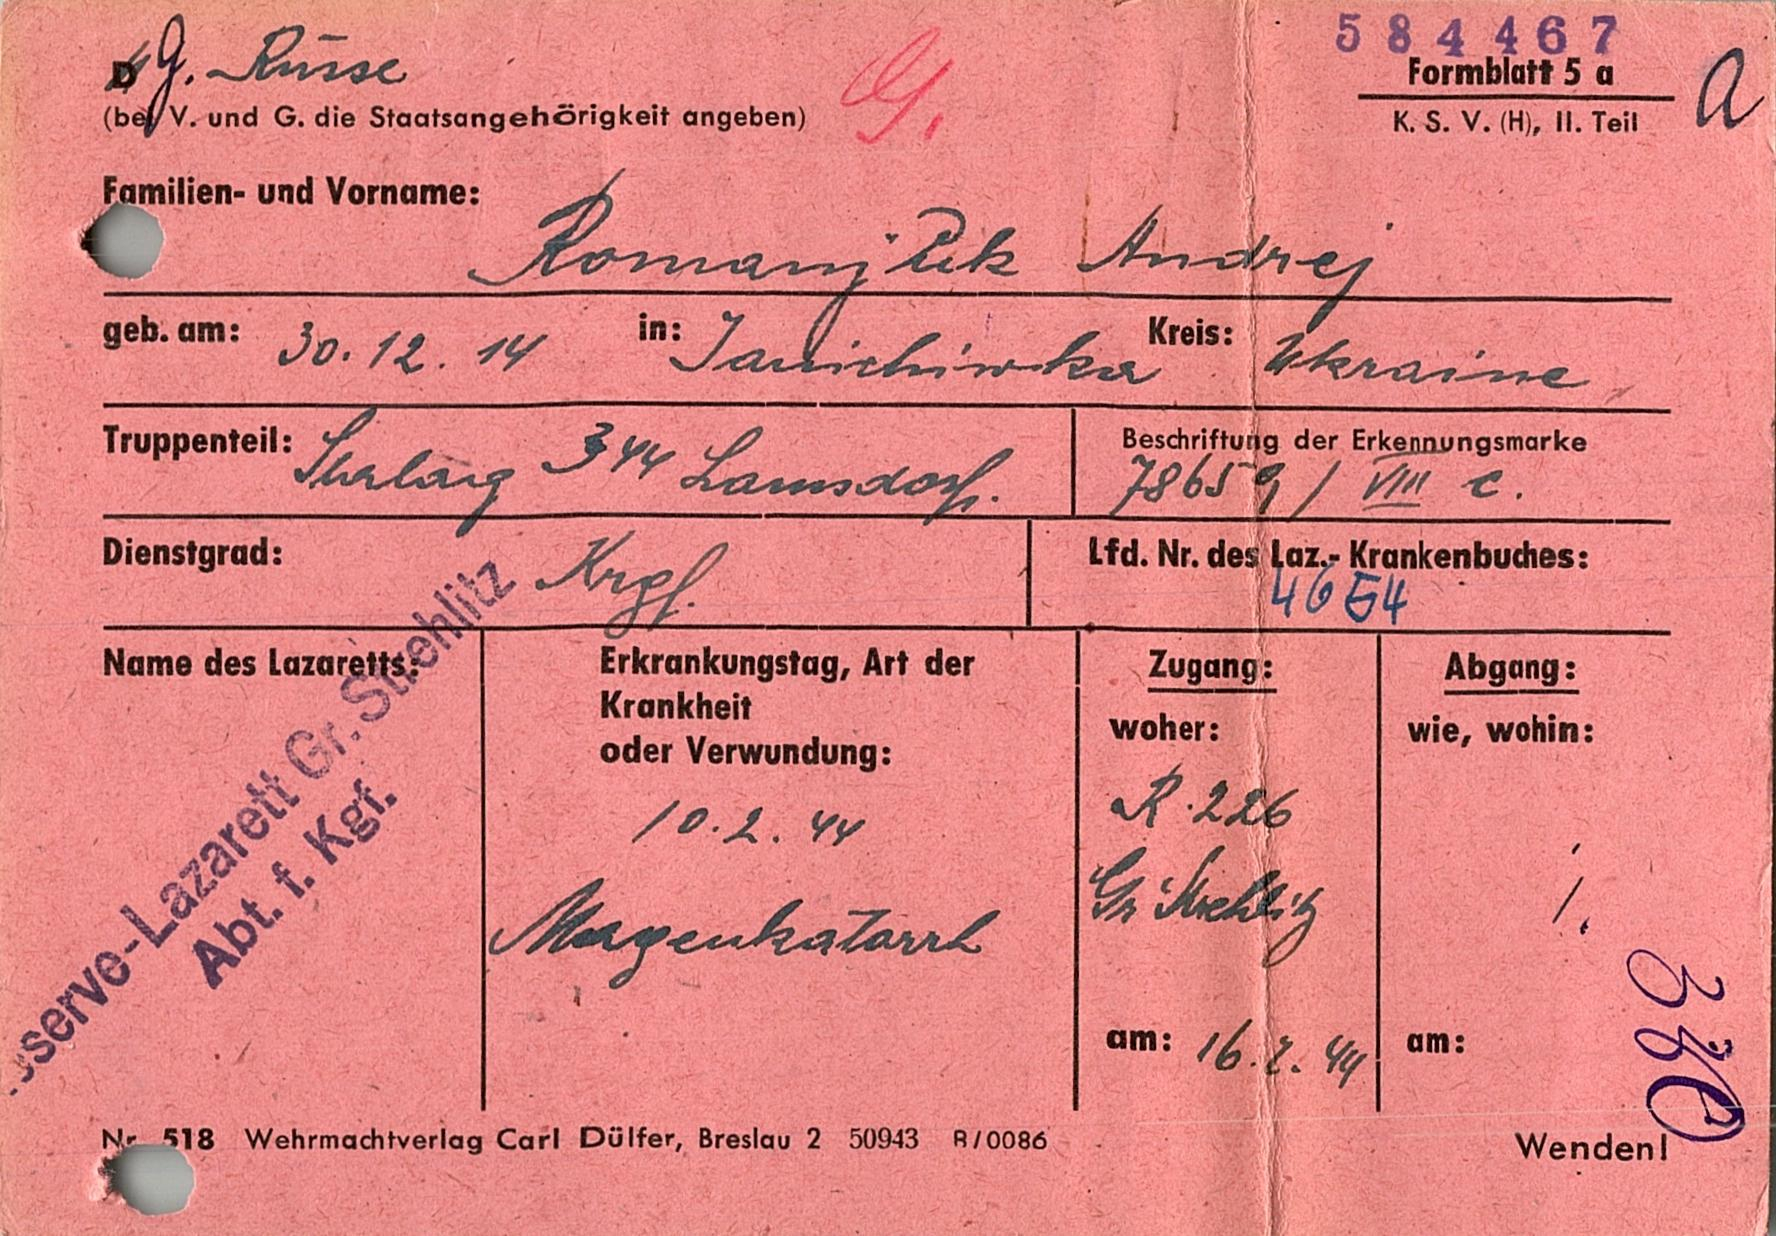 584467
D G. Russe
G.
Formblatt 5 a
a
(bei V. und G. die Staatsangehörigkeit angeben)
K. S. V. (H), II. Teil
Familien- und Vorname:
Romanjtük Andrej
geb. am: 30. 12. 14 in: Kreis: Ukraine
Truppenteil: Stalag 344 Lamsdorf.
Beschriftung der Erkennungsmarke
78659 / VIII C.
Dienstgrad: Krgf.
Lfd. Nr. des Laz.- Krankenbuches:
4654
Name des Lazaretts:
Reserve-Lazarett Gr. Strehlitz
Abt. f. Kgf.
Erkrankungstag, Art der
Krankheit
oder Verwundung:
10. 2. 44
Magenkatarrh
Zugang:
woher:
R. 226
Gr. Strehlitz
am: 16. 2. 44
Abgang:
wie, wohin:
am:
Nr. 518 Wehrmachtverlag Carl Dülfer, Breslau 2 50943 R/0086
Wenden!